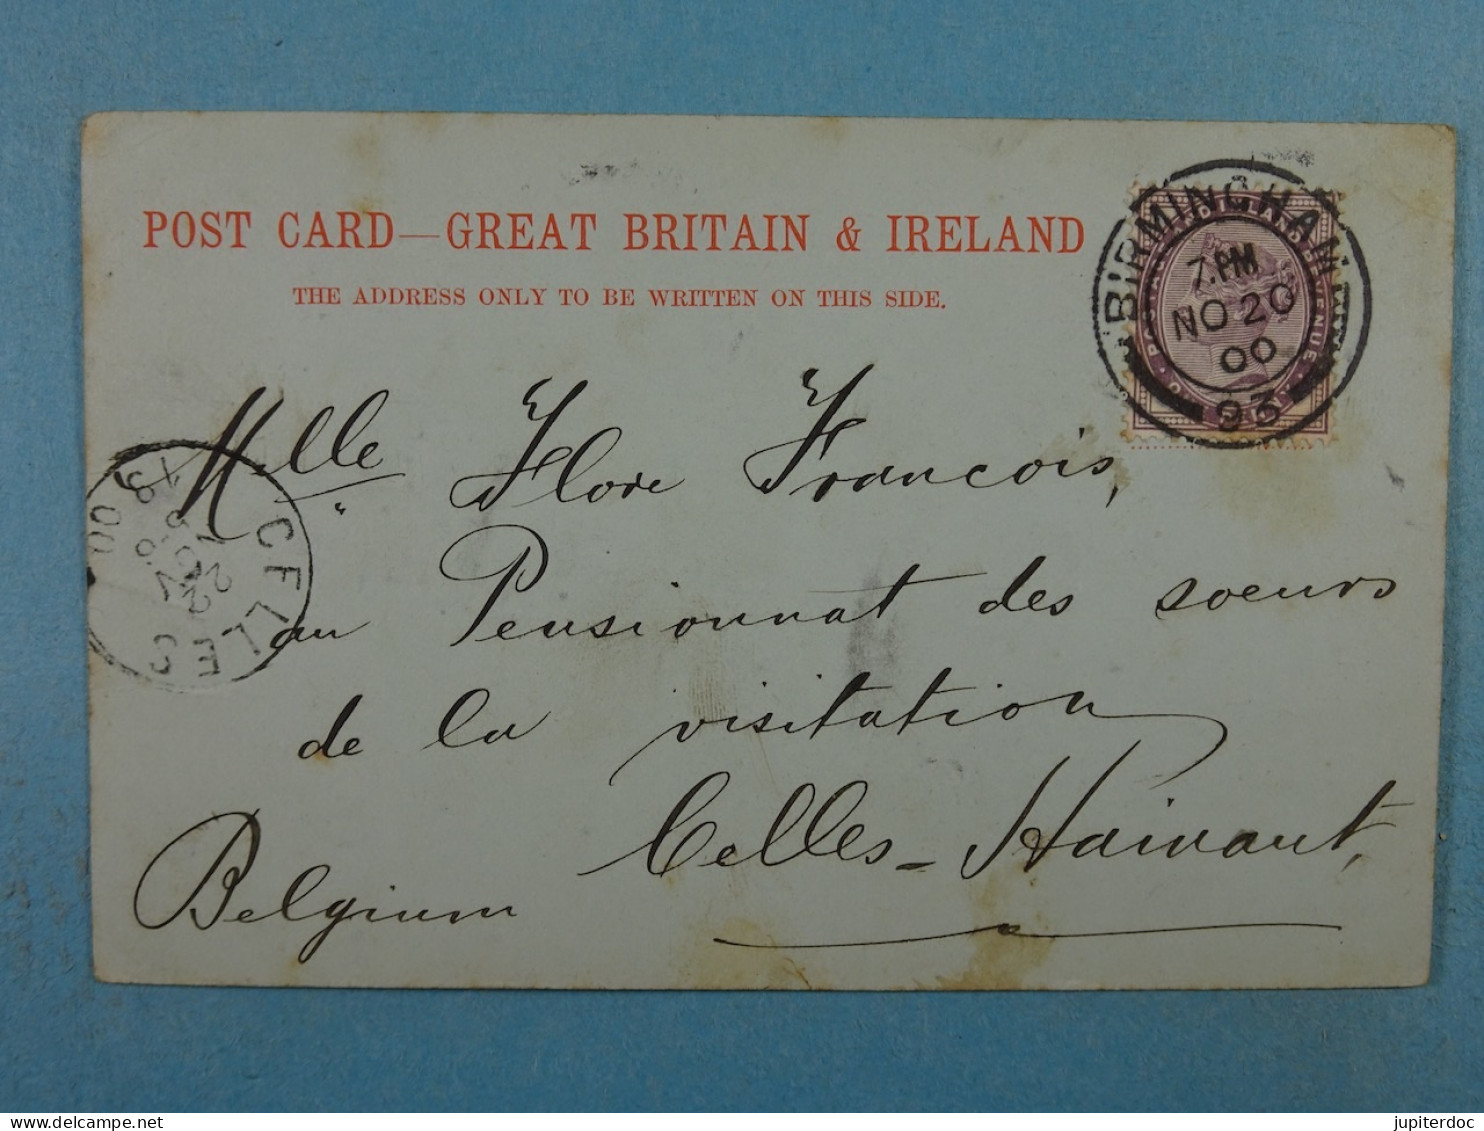 POST CARD—GREAT BRITAIN & IRELAND
THE ADDRESS ONLY TO BE WRITTEN ON THIS SIDE.
BIRMINGHAM
7.PM
NO 20
00
93
Mlle Flore Francois,
au Pensionnat des soeurs
de la visitation
Celles-Hainaut,
Belgium
CELLES
22
NOV
00
jupiterdoc